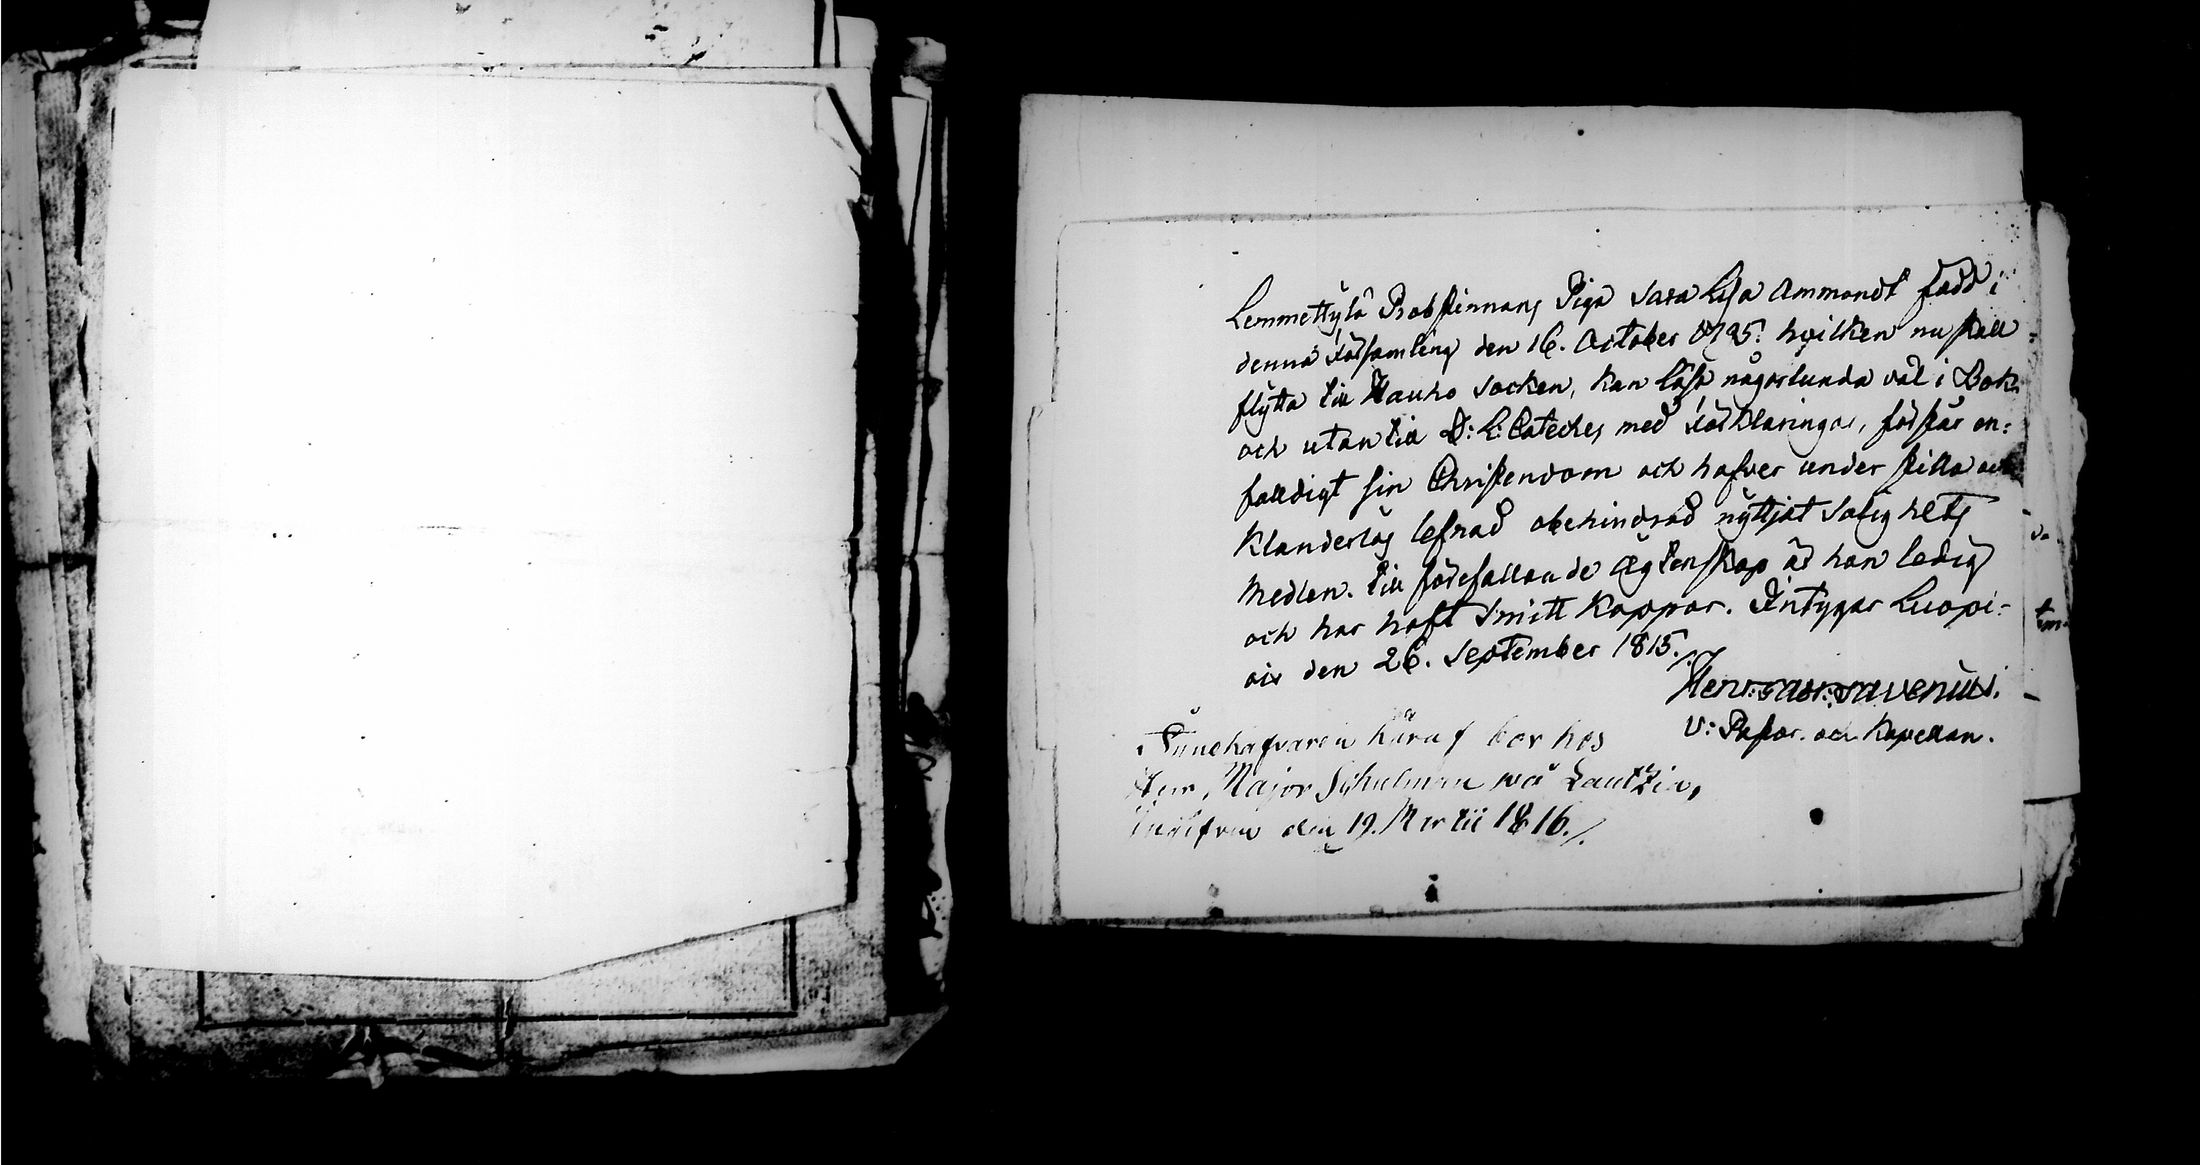 Lemmettylä Probstinnans Piga Sara Lisa Ammondt född i
denna Församling den 16. October 1795. hvilken nu skall
flytta till Hauho Socken, kan läsa någorlunda väl i Bok
och utantill D: L: Cateches med Förklaringar, förstår en:
falldigt sin Christendom och hafver under stilla och
klanderlös lefnad obehindrad nyttjat Salighets
Medlen. till förefallande Ägtenskap är hon ledig
och har haft Smitt Koppor. Intygar Luopi-
ois den 26. September 1815.
V: Pastor. och Kapellan.
Innehafvaren häraf bor hos
Herr Major Schulman på Lautzia,
den 19. Martii 1816./.